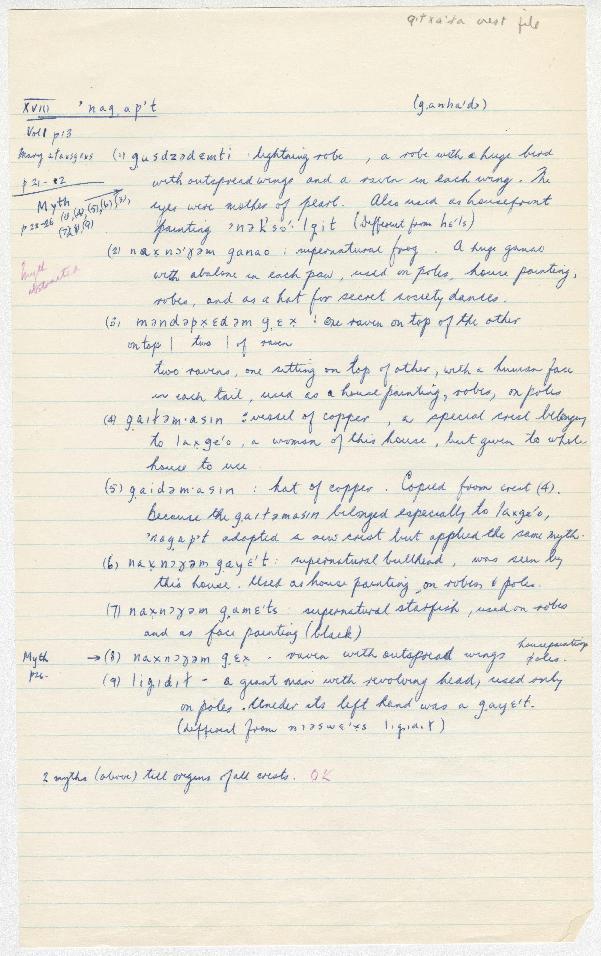 gitxa'ła crest file
XVIII 'nagap't (ganha'də)
Vol I p13
(1) gusdzədɛmti : lightning robe , a robe with a huge bird
with outspread wings and a raven in each wing. The
p 21-22
eyes were mother of pearl. Also used as housefront
Myth
painting (Different from hɛ'ls)
(2) naxnɔ'ɣəm ganao : supernatural frog. A huge ganao
with abalone in each paw, used on poles, house painting,
Myth
abstracted
robes, and as a hat for secret society dances.
(3) məndəpxɛdəm gɛx : One raven on top of the other
on top | two | of raven
two ravens, one sitting on top of other, with a human face
in each tail, used as a house painting, robes, on poles
(4) gaitəm·asın : vessel of copper , a special crest belonging
to laxgɛ'o, a woman of this house, but given to whole
house to use
(5) gaidəm·asın : hat of copper. Copied from crest (4).
Because the gaitəmasın belonged especially to laxgɛ'o,
'nagap't adopted a new crest but applied the same myth.
(6) naxnɔɣəm gayɛ't : supernatural bullhead, was seen by
this house. Used as house painting, on robes & poles.
(7) naxnɔɣəm gamɛ'ts : supernatural starfish, used on robes
and as face painting (black)
Myth
p24-
→ (8) naxnɔɣəm gɛx - raven with outspread wings housepainting
poles.
(9) ligidit - a great man with revolving head, used only
on poles. Under its left hand was a gayɛ't.
(different from nıəswɛ'xs ligidit)
2 myths (above) tell origins of all crests. OK